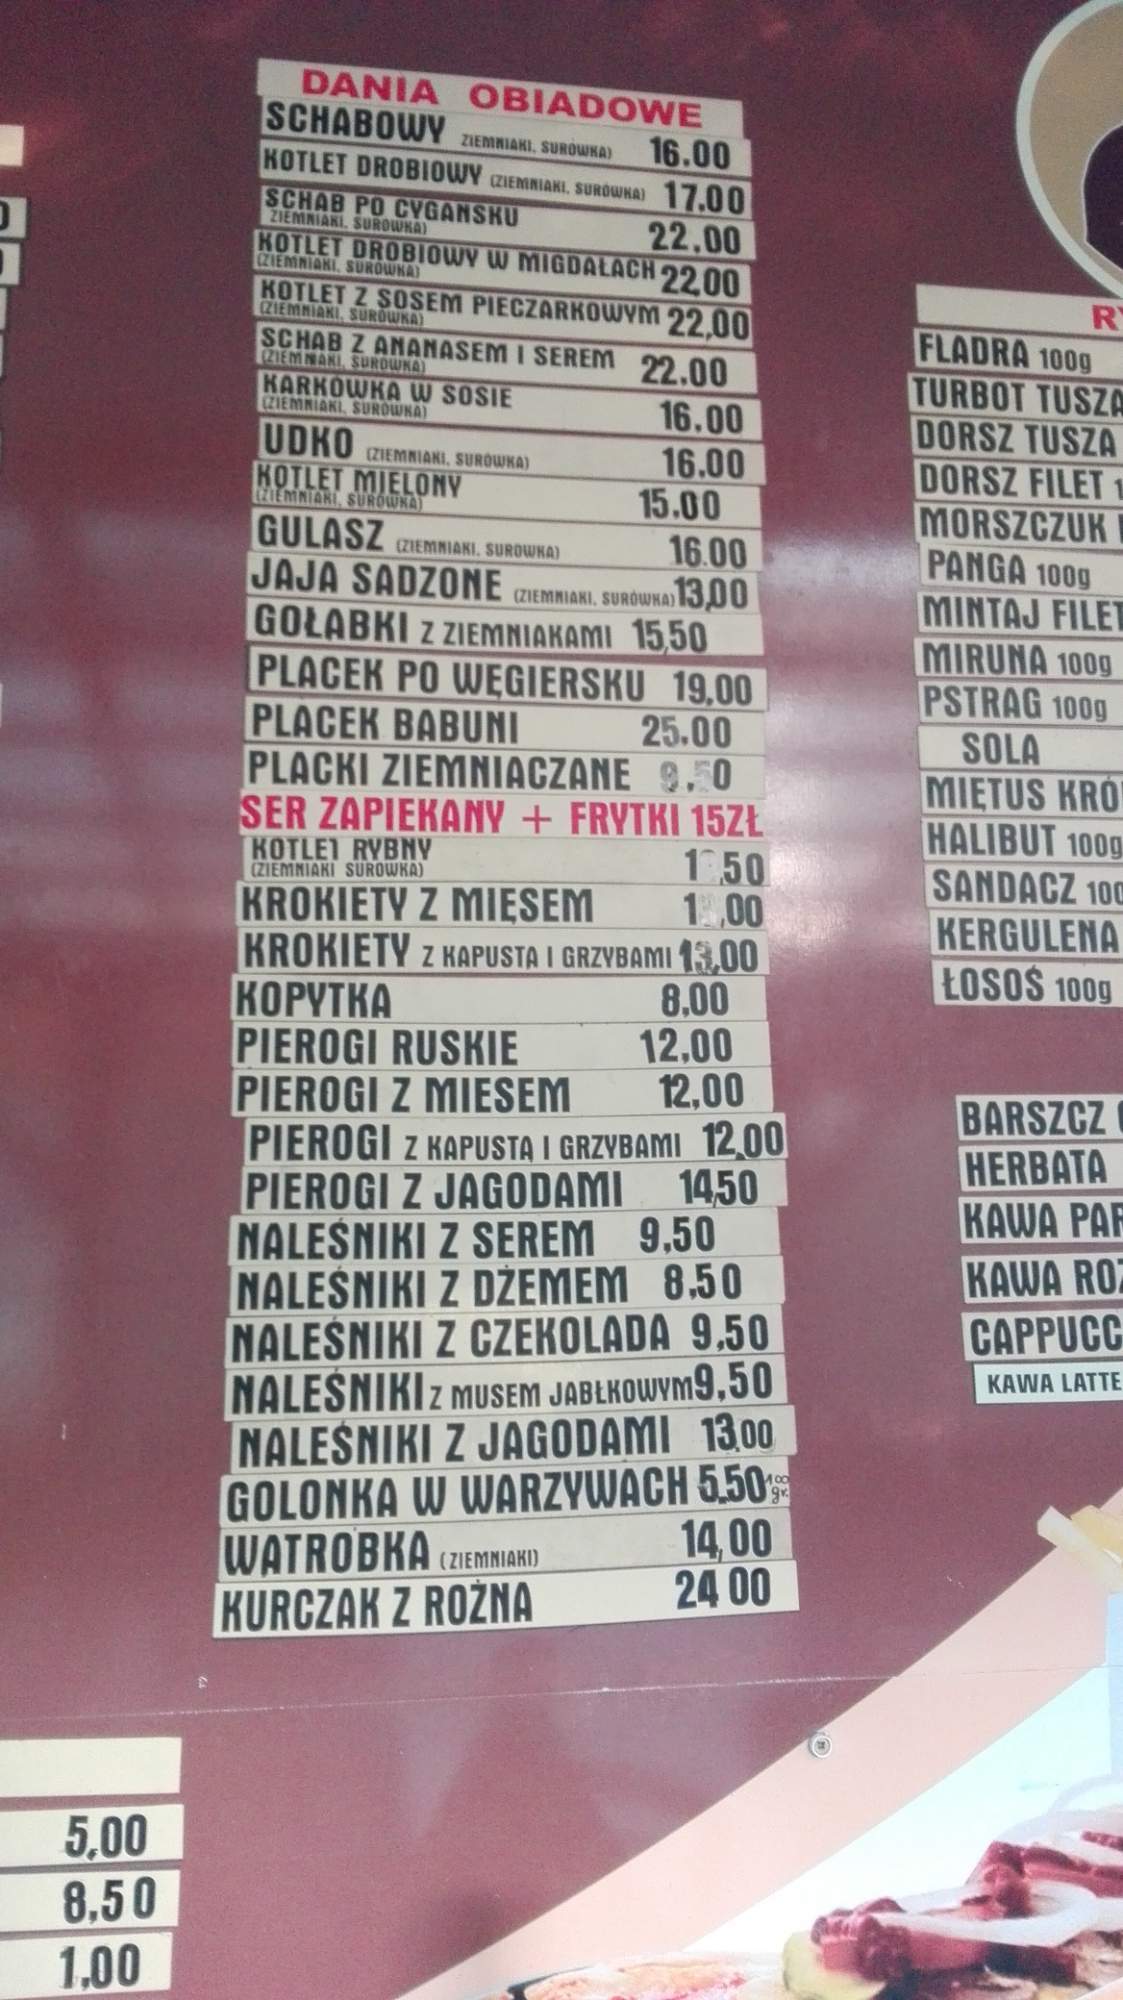 DANIA OBIADOWE
SCHABOWY ZIEMNIAKI, SURÓWKA) 16.00
KOTLET DROBIOWY (ZIEMNIAKI, SURÓWKA) 17.00
SCHAB PO CYGANSKU 22.00
ZIEMNIAKI, SURÓWKA)
KOTLET DROBIOWY W MIGDAŁACH 22,00
(ZIEMNIAKI, SURÓWKA)
KOTLET Z SOSEM PIECZARKOWYM 22,00
(ZIEMNIAKI, SURÓWKA)
SCHAB Z ANANASEM I SEREM 22.00
(ZIEMNIAKI, SURÓWKA)
KARKÓWKA W SOSIE 16.00
(ZIEMNIAKI, SURÓWKA)
UDKO (ZIEMNIAKI, SURÓWKA) 16.00
KOTLET MIELONY 15.00
(ZIEMNIAKI, SURÓWKA)
GULASZ (ZIEMNIAKI, SURÓWKA) 16.00
JAJA SADZONE (ZIEMNIAKI, SURÓWKA) 13,00
GOŁĄBKI Z ZIEMNIAKAMI 15,50
PLACEK PO WĘGIERSKU 19,00
PLACEK BABUNI 25.00
PLACKI ZIEMNIACZANE
SER ZAPIEKANY + FRYTKI 15ZŁ
KOTLET RYBNY
(ZIEMNIAKI SURÓWKA)
KROKIETY Z MIĘSEM
KROKIETY Z KAPUSTĄ I GRZYBAMI 13,00
KOPYTKA 8,00
PIEROGI RUSKIE 12,00
PIEROGI Z MIESEM 12,00
PIEROGI Z KAPUSTĄ I GRZYBAMI 12,00
PIEROGI Z JAGODAMI 14,50
NALEŚNIKI Z SEREM 9,50
NALEŚNIKI Z DŻEMEM 8,50
NALEŚNIKI Z CZEKOLADA 9,50
NALEŚNIKI Z MUSEM JABŁKOWYM 9,50
NALEŚNIKI Z JAGODAMI 13,00
GOLONKA W WARZYWACH 5,50 100 gr.
WATROBKA (ZIEMNIAKI) 14,00
KURCZAK Z ROŻNA 24 00
FLADRA 100g
TURBOT TUSZA
DORSZ TUSZA
DORSZ FILET
MORSZCZUK
PANGA 100g
MINTAJ FILET
MIRUNA 100g
PSTRAG 100g
SOLA
MIĘTUS KRÓ
HALIBUT 100g
SANDACZ 100
KERGULENA
ŁOSOŚ 100g
BARSZCZ
HERBATA
KAWA PAR
KAWA ROZ
CAPPUCC
KAWA LATTE
5,00
8,50
1,00